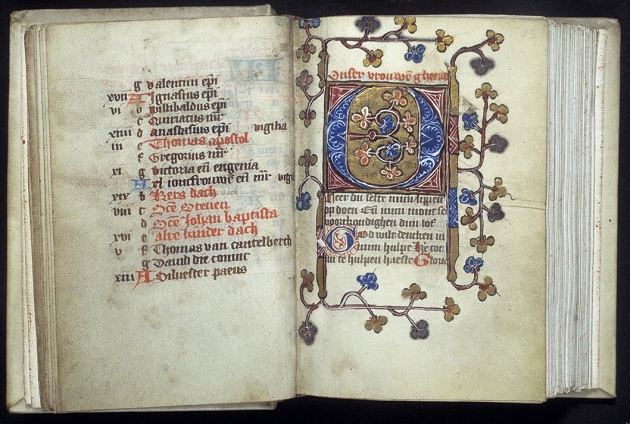 g valentini epi
xvii A Ignasius epi
vi b willibaldus epi
c Quiriatus mr
xiiii d anastasius epi vigilia
iii e Thomas apostol
f Gregorius mr
xi g victoria en eugenia
A xl ioncfrouwe en mr vigi
xix b Kers dach
viii c Sce Steuen
d Sce Johan baptista
xvi e alre kinder dach
v f Thomas van cantelberch
g Dauid die coninc
xiii A Siluester paeus
Onser vrouwen ghetide
Here du selte mijn lippen
op doen En mijn mont sel
voortkondighen dijn lof
God wilt dencken in
mijn hulpe Here
mi te hulpen haeste Glorie